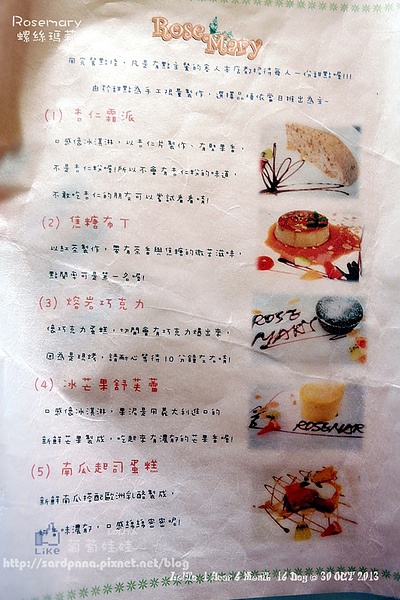 Rosemary
螺絲瑪莉
Rose Mary
用完餐點後，凡是有點主餐的客人本店都招待每人一份甜點喔!!!
由於甜點為手工限量製作，選擇品項依當日推出為主~
(1) 杏仁霜派
口感像冰淇淋，以杏仁片製作，有堅果香，
不是杏仁粉喔!所以不會有杏仁粉的味道，
不敢吃杏仁的朋友可以嘗試看看唷!
(2) 焦糖布丁
以紅茶製作，帶有茶香與焦糖的微苦滋味，
點閱率可是第一名喔!
(3) 熔岩巧克力
像巧克力蛋糕，切開會有巧克力爆出來，
因為是現烤，請耐心等待10分鐘左右唷!
ROSE MARY
(4) 冰芒果舒芙蕾
口感像冰淇淋，果泥是用義大利進口的
新鮮芒果製成，吃起來有濃郁的芒果香喔!
ROSEMAR
(5) 南瓜起司蛋糕
新鮮南瓜搭配歐洲乳酪製成，
味濃郁，口感綿綿密密喔!
Like
葡萄娃娃
http://sardpana.pixnet.net/blog
1 Year 6 Month 16 Day @ 30 OCT 2013